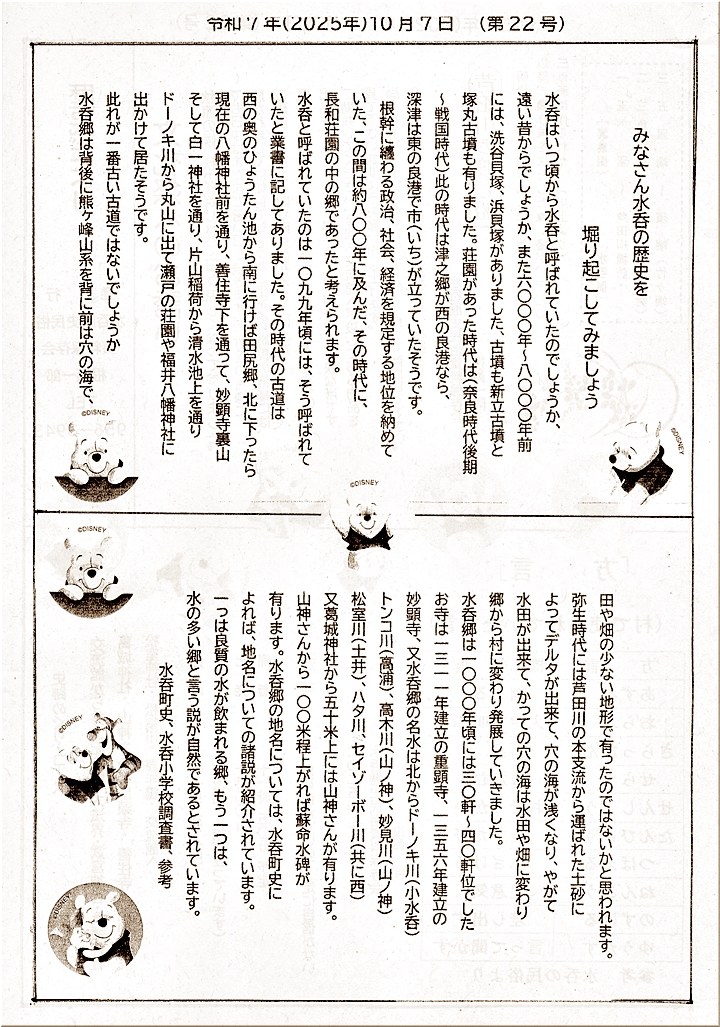 令和7年(2025年)10月7日　(第22号)
みなさん水呑の歴史を
堀り起こしてみましょう
水呑はいつ頃から水呑と呼ばれていたのでしょうか、
遠い昔からでしょうか、また六〇〇〇年～八〇〇〇年前
には、洗谷貝塚、浜貝塚がありました、古墳も新立古墳と
塚丸古墳も有りました。荘園があった時代は(奈良時代後期
～戦国時代)此の時代は津之郷が西の良港なら、
深津は東の良港で市(いち)が立っていたそうです。
根幹に纏わる政治、社会、経済を規定する地位を納めて
いた、この間は約八〇〇年に及んだ、その時代に、
長和荘園の中の郷であったと考えられます。
水呑と呼ばれていたのは一〇九九年頃には、そう呼ばれて
いたと業書に記してありました。その時代の古道は
西の奥のひょうたん池から南に行けば田尻郷、北に下ったら
現在の八幡神社前を通り、善住寺下を通って、妙顕寺裏山
そして白一神社を通り、片山稲荷から清水池上を通り
ドーノキ川から丸山に出て瀬戸の荘園や福井八幡神社に
出かけて居たそうです。
此れが一番古い古道ではないでしょうか
水呑郷は背後に熊ヶ峰山系を背に前は穴の海で、
©DISNEY
©DISNEY
©DISNEY
©DISNEY
田や畑の少ない地形で有ったのではないかと思われます。
弥生時代には芦田川の本支流から運ばれた土砂に
よってデルタが出来て、穴の海が浅くなり、やがて
水田が出来て、かつての穴の海は水田や畑に変わり
郷から村に変わり発展していきました。
水呑郷は一〇〇〇年頃には三〇軒～四〇軒位でした
お寺は一三一一年建立の重顕寺、一三五六年建立の
妙顕寺、又水呑郷の名水は北からドーノキ川(小水呑)
トンコ川(高浦)、高木川(山ノ神)、妙見川(山ノ神)
松室川(土井)、ハタ川、セイゾーボー川(共に西)
又葛城神社から五十米上には山神さんが有ります。
山神さんから一〇〇米程上がれば蘇命水碑が
有ります。水呑郷の地名については、水呑町史に
よれば、地名についての諸説が紹介されています。
一つは良質の水が飲まれる郷、もう一つは、
水の多い郷と言う説が自然であるとされています。
水呑町史、水呑小学校調査書、参考
©DISNEY
©DISNEY